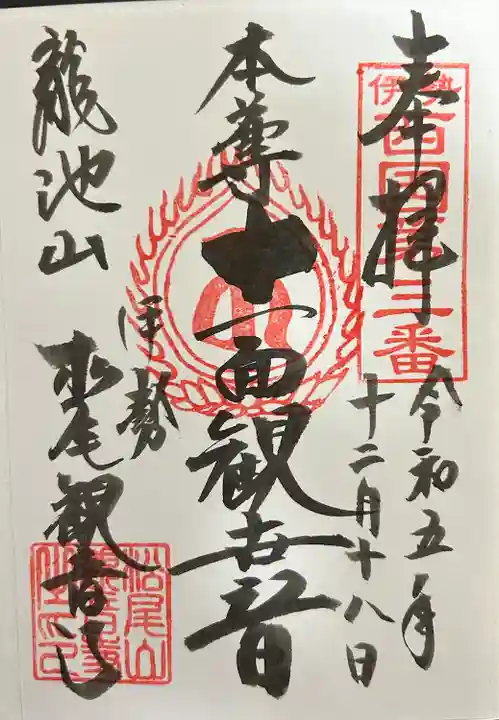 奉拝
伊勢
西国第三番
令和五年
十二月十八日
本尊
十一面観世音
龍池山
伊勢
松尾観音寺